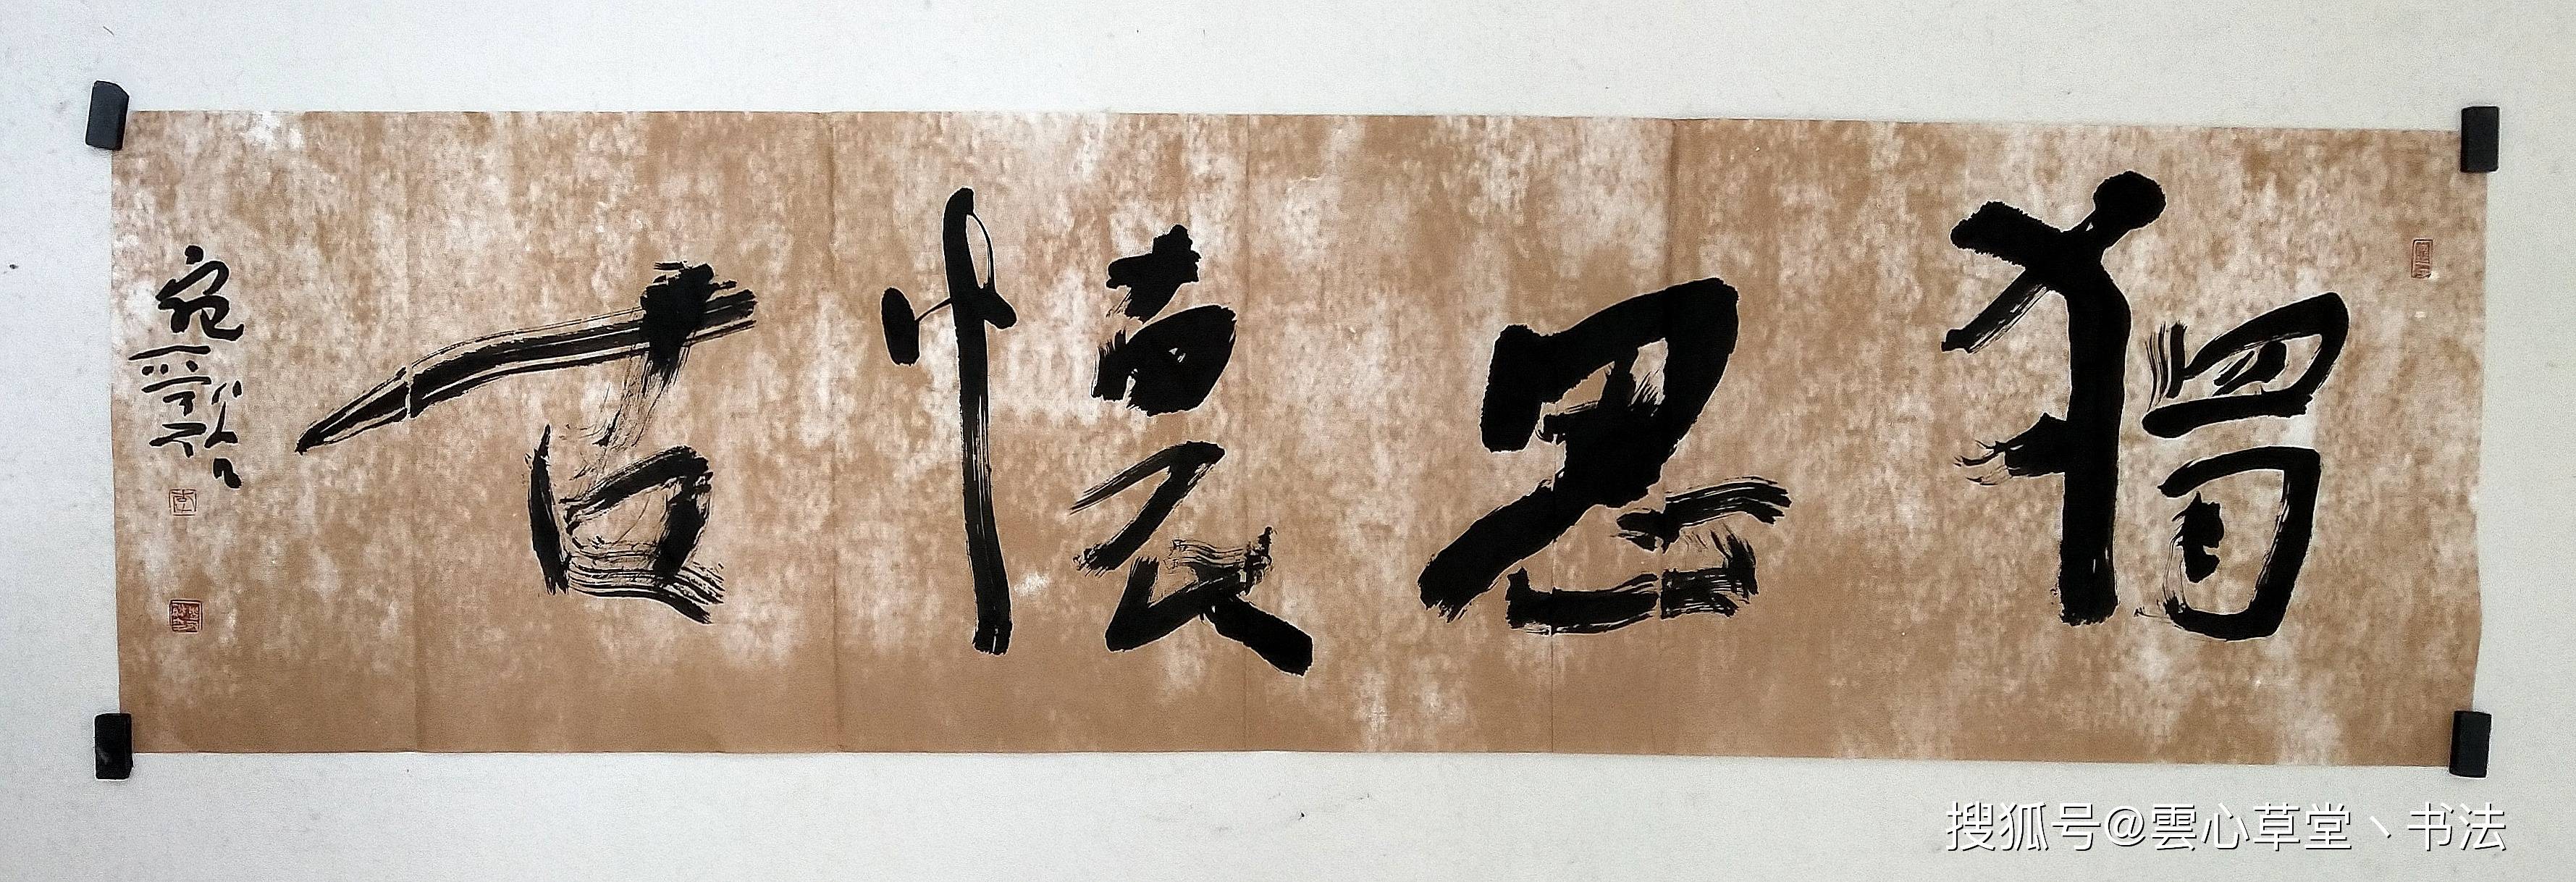 獨思懷古
搜狐号@雲心草堂丶书法